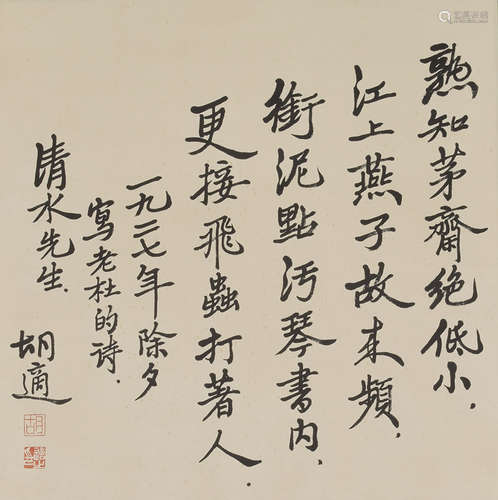 熟知茅齋绝低小，
江上燕子故来頻，
銜泥點污琴書內，
更接飛蟲打著人．
一九二七年除夕
寫老杜的诗．
清水先生．
胡適